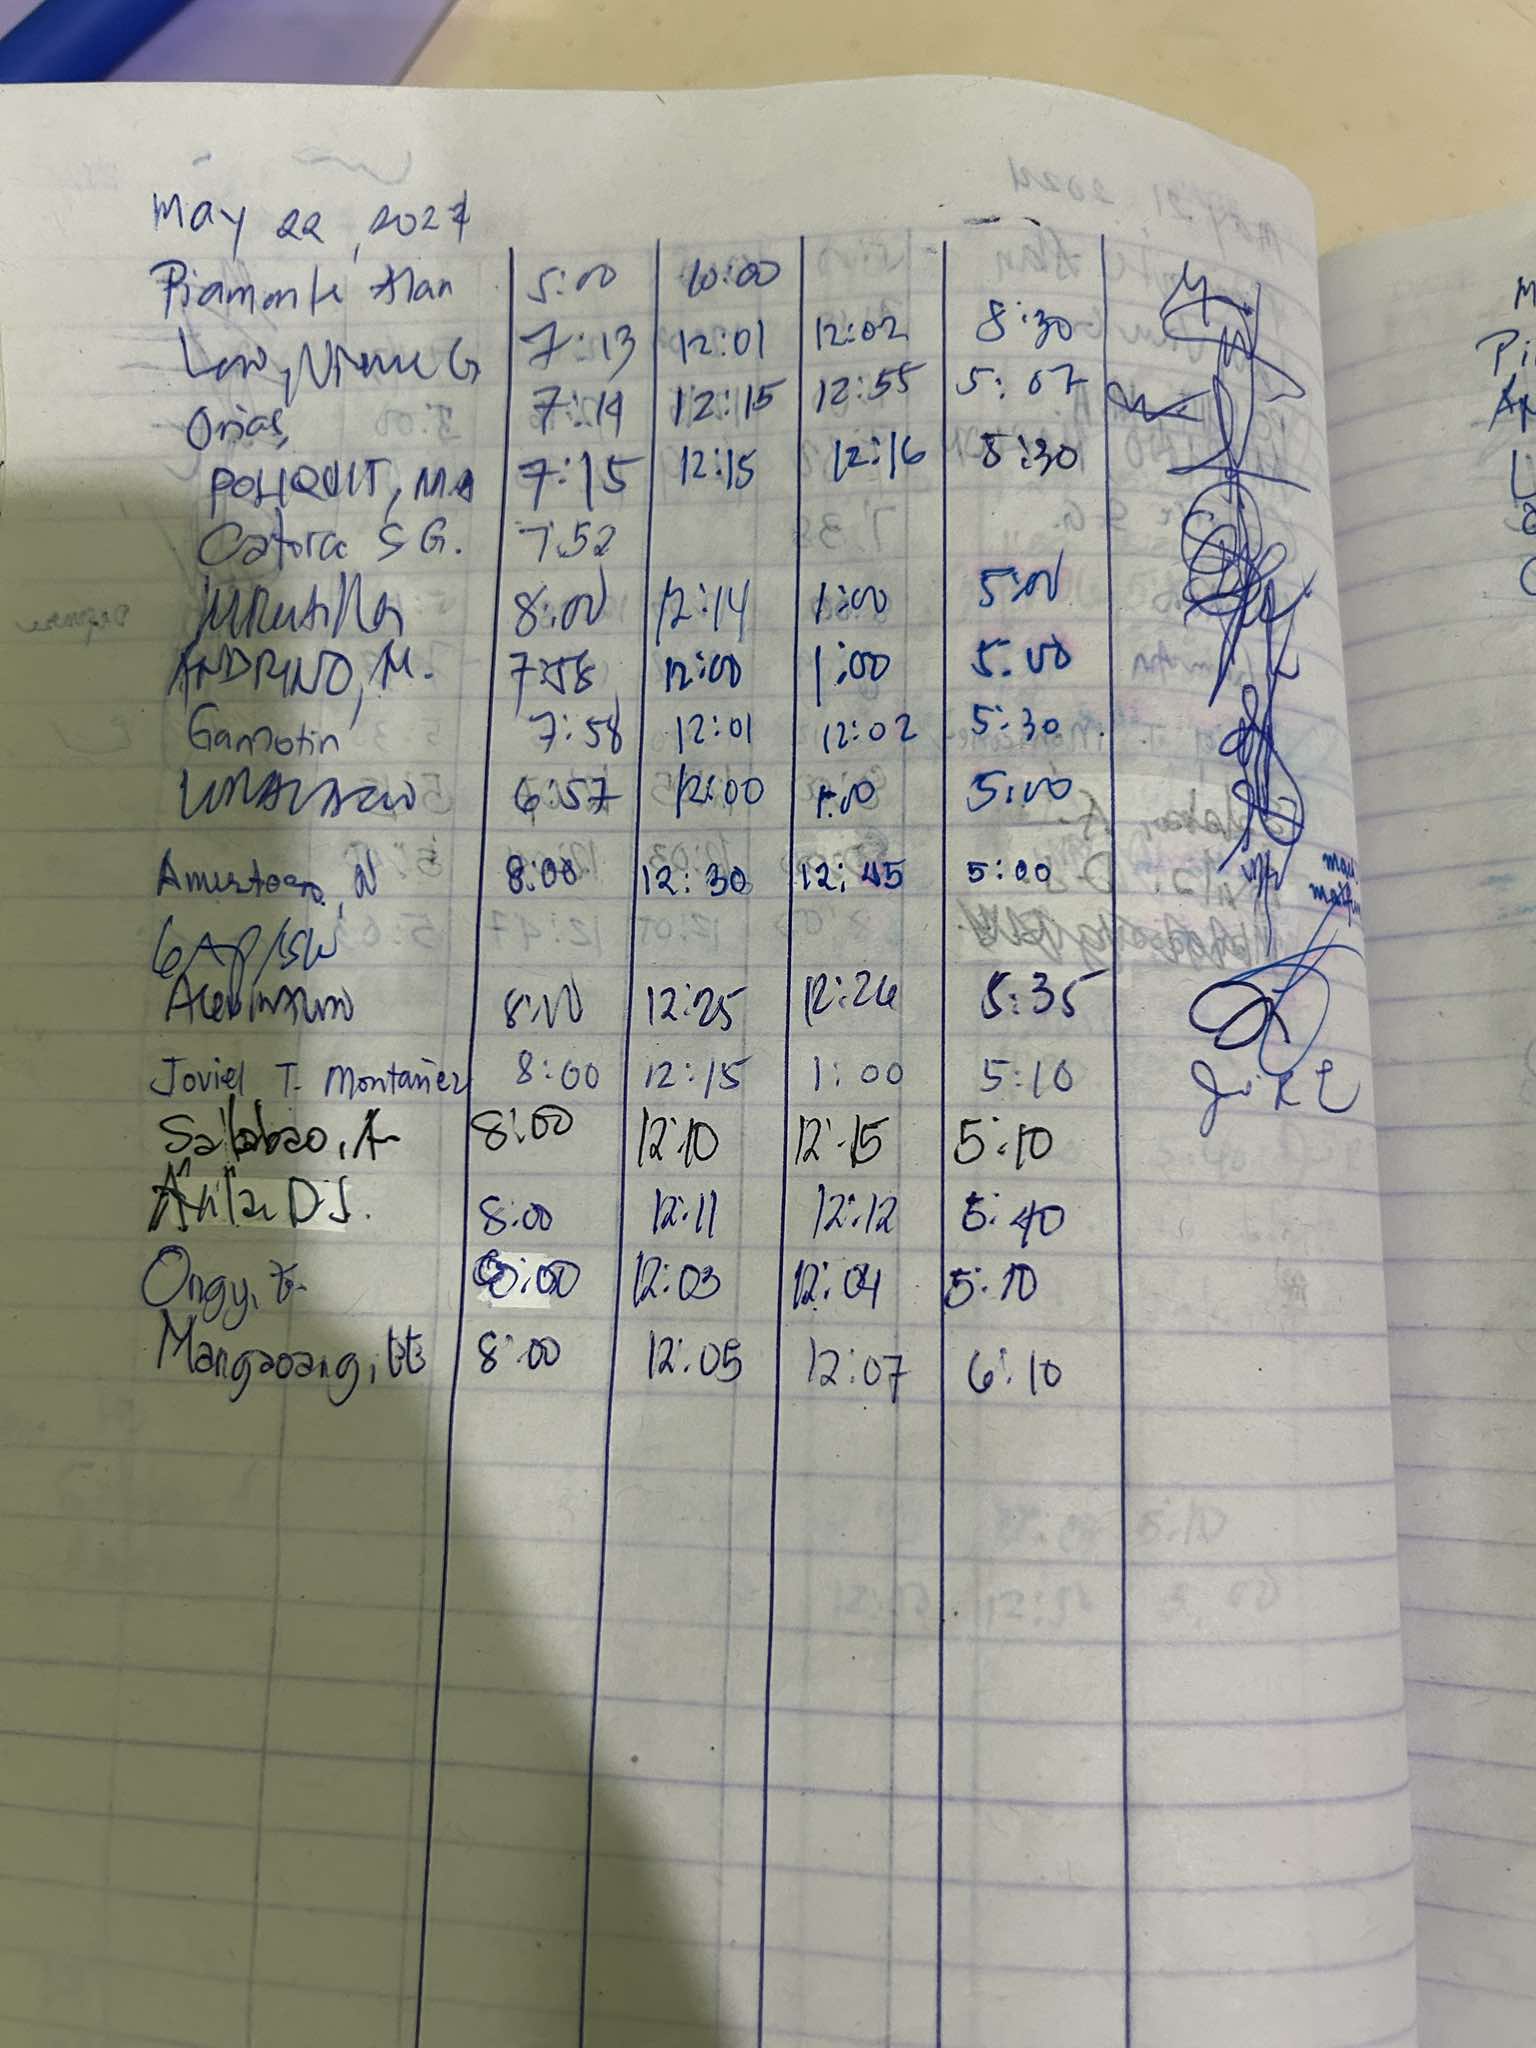 May 22, 2024
Piamonte Alan 5:00 10:00
7:13 12:01 12:02 8:30
Orias, 7:14 12:15 12:55 5:07
POLIQUIT, MA 7:15 12:15 12:16 5:30
S G. 7:52
8:00 12:14 1:00 5:00
ANDRINO, M. 7:58 12:00 1:00 5:00
Gamotin 7:58 12:01 12:02 5:30
6:57 12:00 1:00 5:00
N 8:00 12:30 12:45 5:00
8:00 12:25 12:26 5:35
Joviel T. Montañez 8:00 12:15 1:00 5:10
Sallabao, A 8:00 12:10 12:15 5:10
Avila D J. 8:00 12:11 12:12 5:40
Ongy, F 8:00 12:03 12:04 5:10
Mangaoang, 8:00 12:05 12:07 6:10